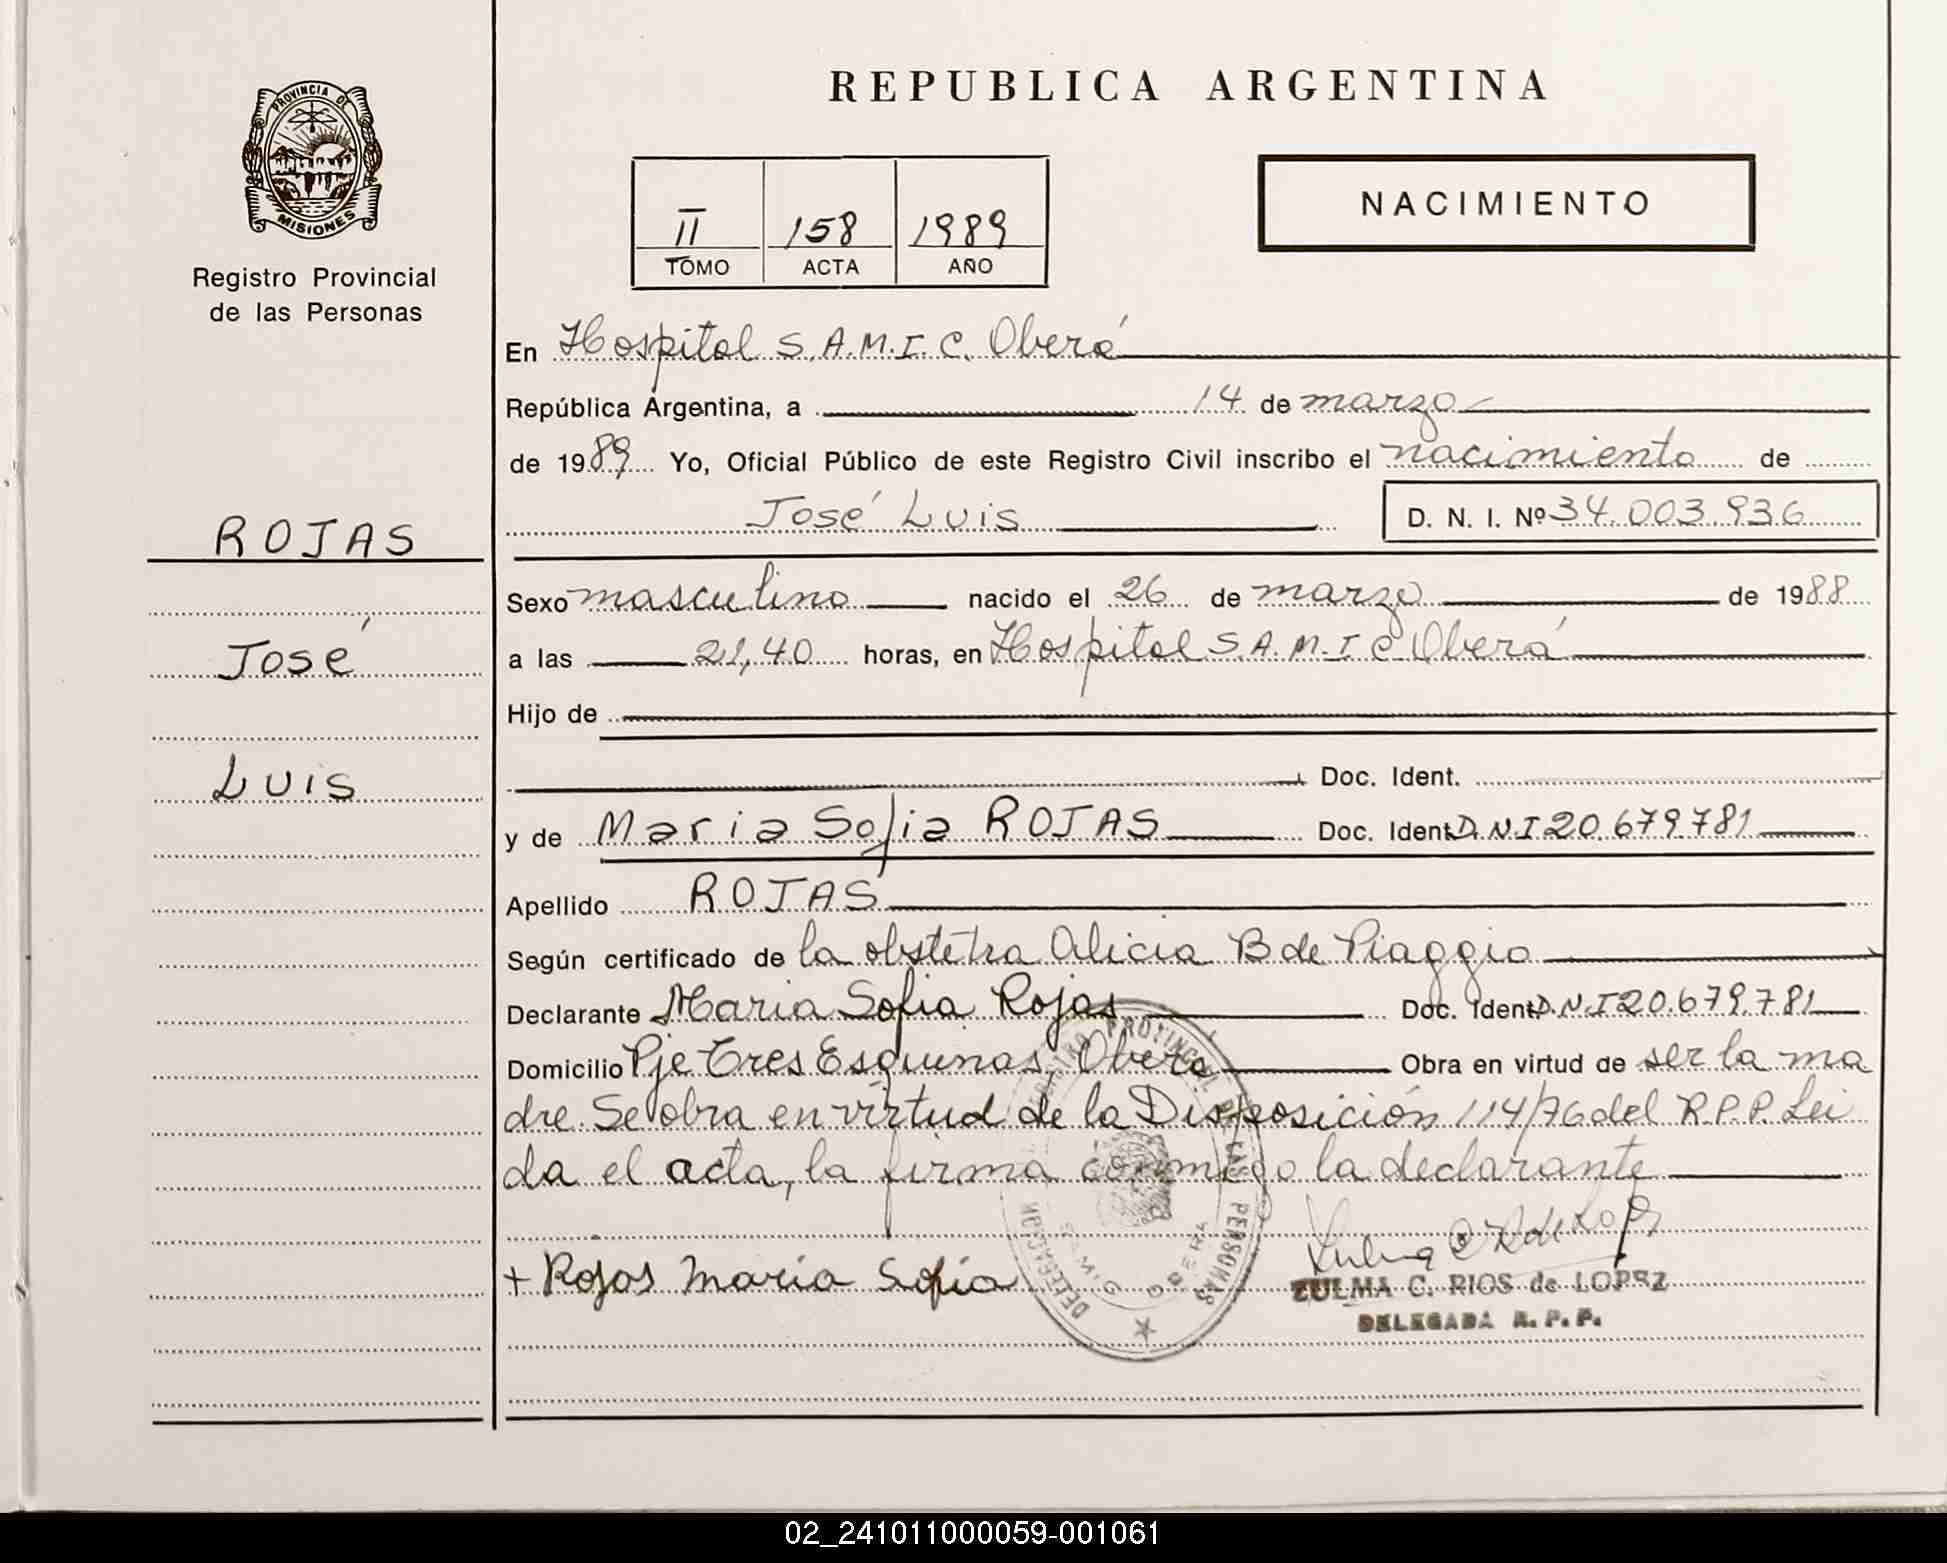 PROVINCIA DE
MISIONES
Registro Provincial
de las Personas
ROJAS
José
Luis
REPUBLICA ARGENTINA
II 158 1989
TOMO ACTA AÑO
NACIMIENTO
En Hospital S.A.M.I.C. Oberá
República Argentina, a 14 de marzo
de 1989 Yo, Oficial Público de este Registro Civil inscribo el nacimiento de
José Luis D. N. I. Nº 34.003.936
Sexo masculino nacido el 26 de marzo de 1988
a las 21,40 horas, en Hospital S.A.M.I.C Oberá
Hijo de
Doc. Ident.
y de Maria Sofia ROJAS Doc. Ident. D.N.I 20.679.781
Apellido ROJAS
Según certificado de la obstetra Alicia B de Piaggio
Declarante Maria Sofia Rojas Doc. Ident. D.N.I 20.679.781
Domicilio Pje Tres Esquinas, Obera Obra en virtud de ser la ma
dre. Se obra en virtud de la Disposición 114/76 del R.P.P. Lei
da el acta, la firma conmigo la declarante
+ Rojas Maria Sofia
ZULMA C. RIOS de LOPEZ
DELEGADA R. P. P.
REGISTRO PROVINCIAL DE LAS PERSONAS
DELEGACION
OBERA
02_241011000059-001061